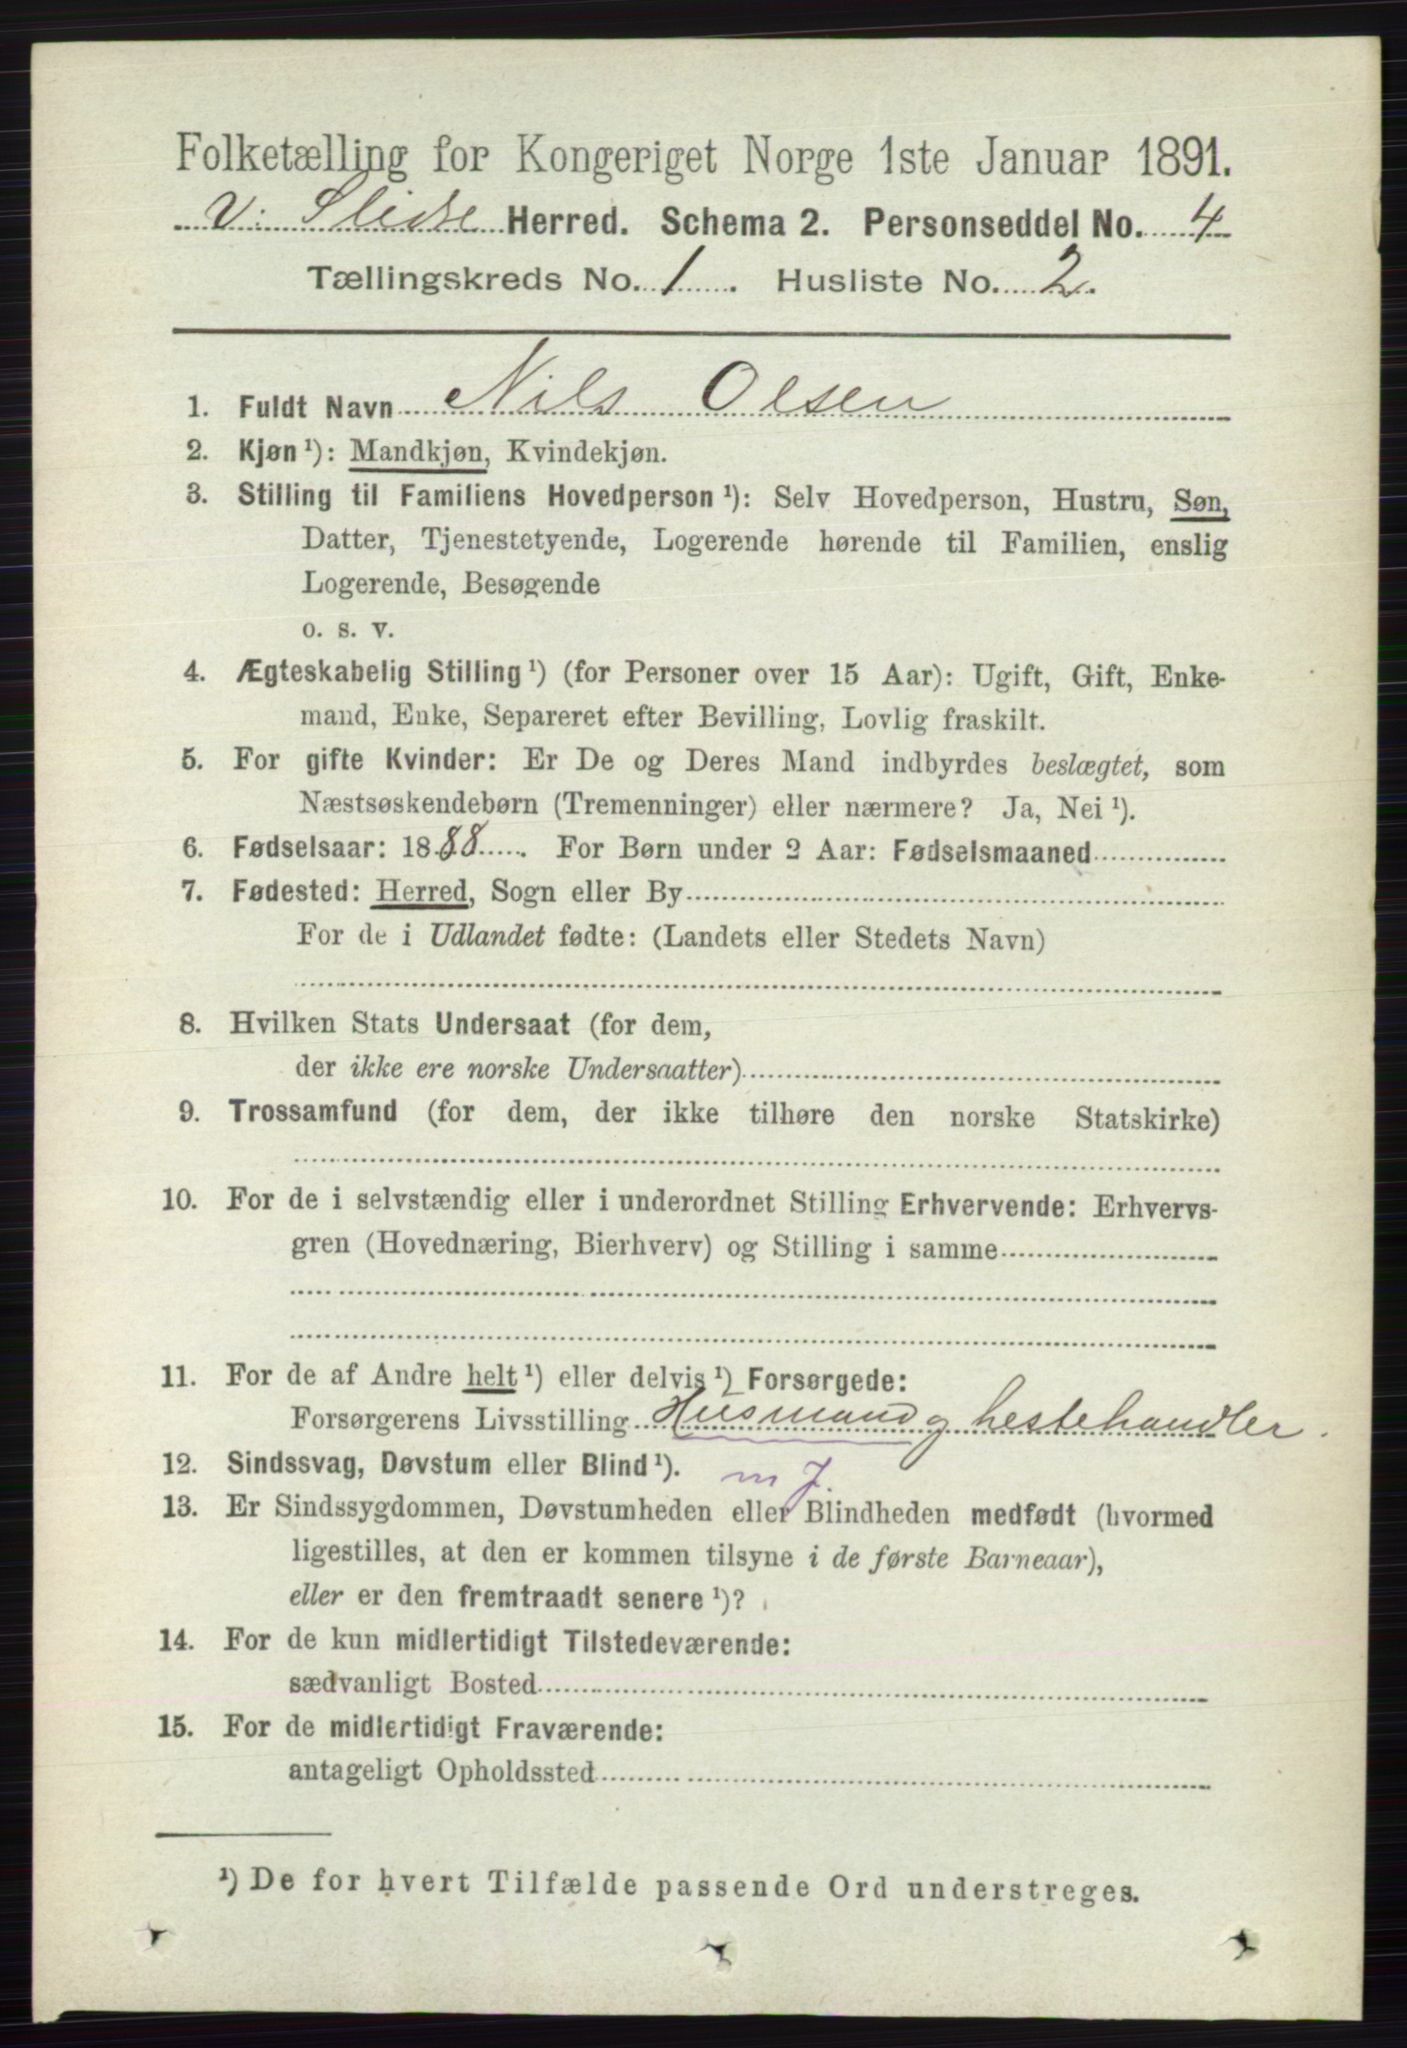 Folketælling for Kongeriget Norge 1ste Januar 1891.
V. Slidre Herred. Schema 2. Personseddel No. 4
Tællingskreds No. 1. Husliste No. 2.
1. Fuldt Navn Nils Olsen
2. Kjøn¹): Mandkjøn, Kvindekjøn.
3. Stilling til Familiens Hovedperson¹): Selv Hovedperson, Hustru, Søn,
Datter, Tjenestetyende, Logerende hørende til Familien, enslig
Logerende, Besøgende
o. s. v.
4. Ægteskabelig Stilling¹) (for Personer over 15 Aar): Ugift, Gift, Enke-
mand, Enke, Separeret efter Bevilling, Lovlig fraskilt.
5. For gifte Kvinder: Er De og Deres Mand indbyrdes beslægtet, som
Næstsøskendebørn (Tremenninger) eller nærmere? Ja, Nei¹).
6. Fødselsaar: 1888. For Børn under 2 Aar: Fødselsmaaned
7. Fødested: Herred, Sogn eller By
For de i Udlandet fødte: (Landets eller Stedets Navn)
8. Hvilken Stats Undersaat (for dem,
der ikke ere norske Undersaatter)
9. Trossamfund (for dem, der ikke tilhøre den norske Statskirke)
10. For de i selvstændig eller i underordnet Stilling Erhvervende: Erhvervs-
gren (Hovednæring, Bierhverv) og Stilling i samme
11. For de af Andre helt¹) eller delvis¹) Forsørgede:
Forsørgerens Livsstilling Husmand og hestehandler.
12. Sindssvag, Døvstum eller Blind¹). m J.
13. Er Sindssygdommen, Døvstumheden eller Blindheden medfødt (hvormed
ligestilles, at den er kommen tilsyne i de første Barneaar),
eller er den fremtraadt senere¹)?
14. For de kun midlertidigt Tilstedeværende:
sædvanligt Bosted
15. For de midlertidigt Fraværende:
antageligt Opholdssted
¹) De for hvert Tilfælde passende Ord understreges.